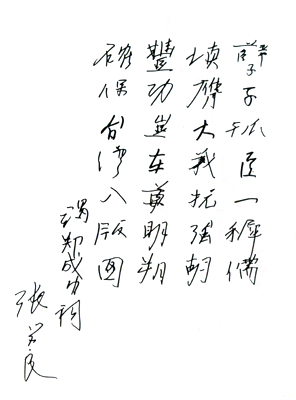 孽子孤臣一穉儒
填膺大義抗強胡
豐功豈在尊明朔
確保台灣入版圖
謁鄭成功祠
張学良